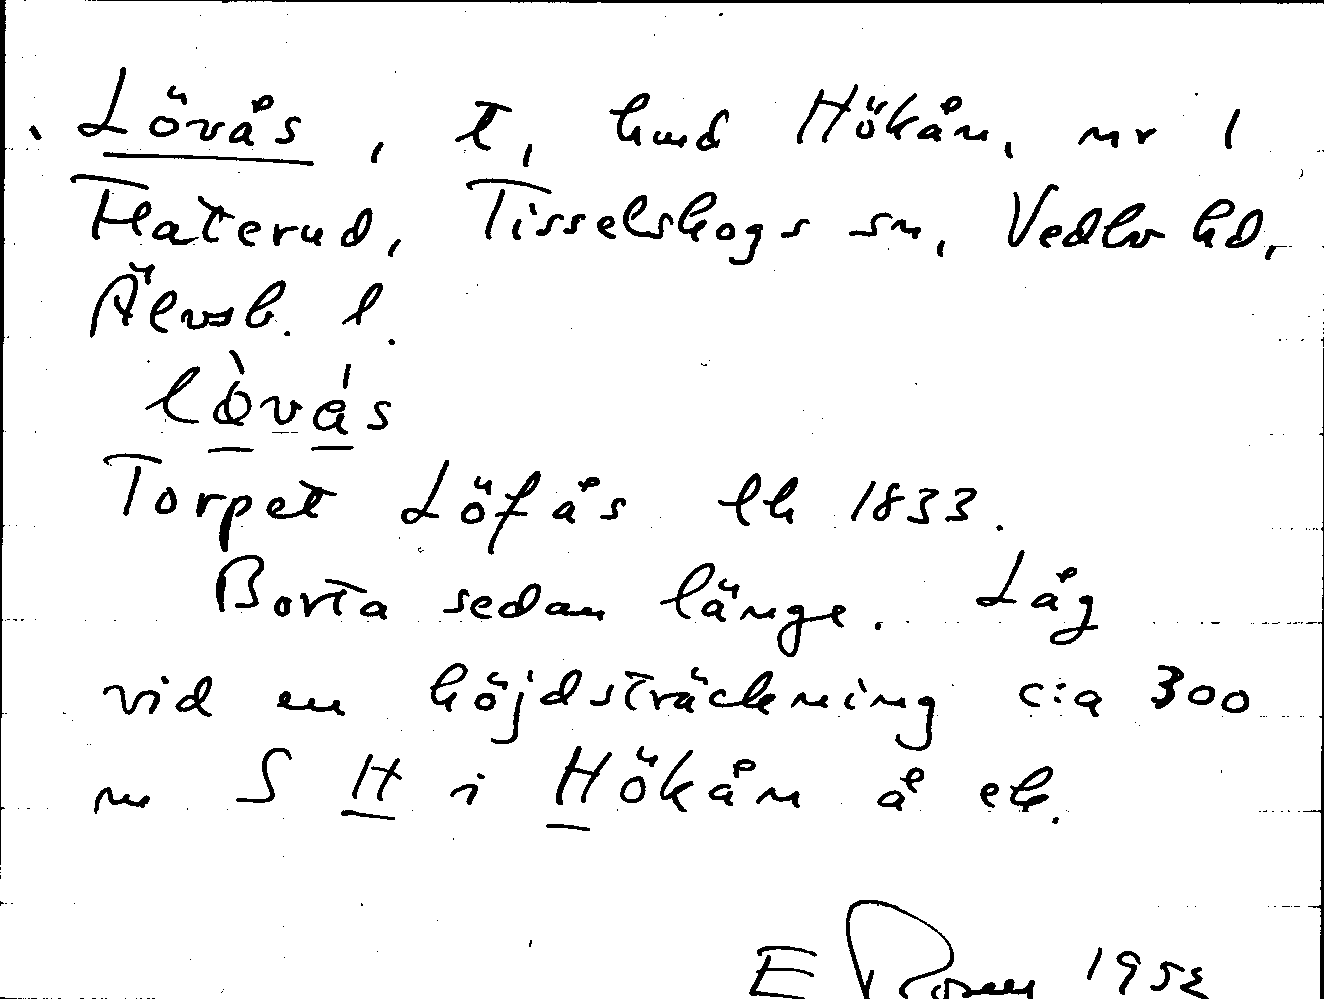 Lövås, t, hmd Hökån, nr 1
Flaterud, Tisselskogs sn, Vedbo hd,
Älvsb. l.
lòvás
Torpet Löfås lh 1833.
Borta sedan länge. Låg
vid en höjdsträckning c:a 300
m S H i Hökån å ek.
E Rosen 1952